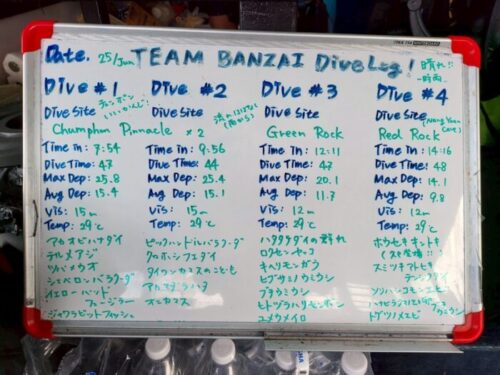 Date. 25/Jun TEAM BANZAI Dive Log!
晴れ!!
一時雨
Dive #1
チャンポン
いいかんじ!
Dive Site
Chumphon Pinnacle × 2
Time in: 7:54
Dive Time: 47
Max Dep: 25.8
Avg Dep: 15.4
Vis: 15m
Temp: 29℃
アカオビハナダイ
テルメアジ
ツバメウオ
イエローバット
フュージラー
ジャワラビットフィッシュ
Dive #2
Dive Site
Time in: 9:56
Dive Time: 44
Max Dep: 25.4
Avg Dep: 15.1
Vis: 15m
Temp: 29℃
ピックハンドルバラクーダ
クロホシフエダイ
タイワンカマスのこども
オニカマス
Dive #3
Dive Site
Green Rock
Time in: 12:11
Dive Time: 47
Max Dep: 20.1
Avg Dep: 11.7
Vis: 12m
Temp: 29℃
ハタタテダイの群れ
ロクセンヤッコ
キヘリモンガラ
ヒブサミノウミウシ
ブチウミウシ
ヒトヅラハリセンボン
ユメウメイロ
Dive #4
Dive Site
(Nang Yuan Cave)
Red Rock
Time in: 14:16
Dive Time: 48
Max Dep: 14.1
Avg Dep: 9.8
Vis: 12m
Temp: 29℃
ホウセキキントキ
スミツキアトヒキ
テンジクダイ
ソリハシコモンエビ
ウミウシ
トゲツノメエビ